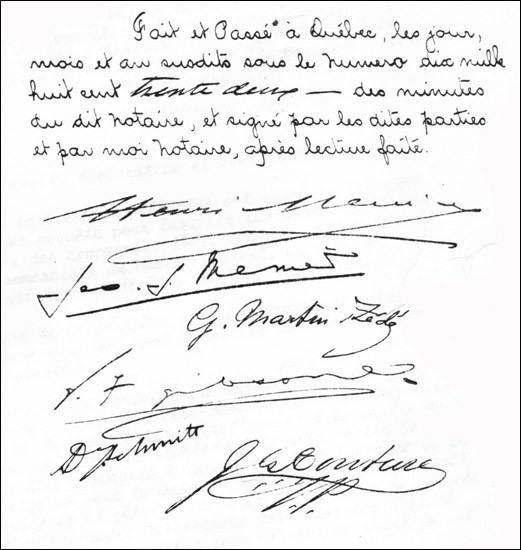 Fait et Passé à Québec, les jour,
mois et an susdits sous le numero dix mille
huit cent trente deux — des minutes
du dit notaire, et signé par les dites parties
et par moi notaire, après lecture faite.
Henri Menier
Geo. J.
G. Martin Zédé
Dr Schmitt
J. Couture